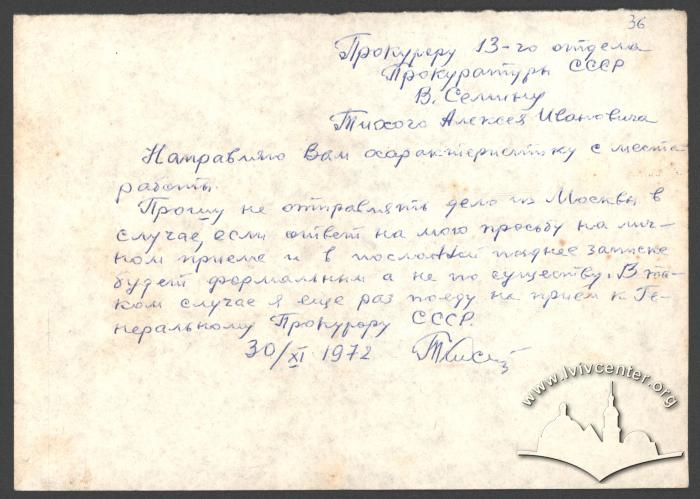 36
Прокурору 13-го отдела
Прокуратуры СССР
В. Селину
Тихого Алексея Ивановича
Направляю Вам характеристику с места
работы.
Прошу не отправлять дело из Москвы в
случае, если ответ на мою просьбу на лич-
ном приеме и в посланной позднее записке
будет формальным а не по существу. В та-
ком случае я еще раз поеду на прием к Ге-
неральному Прокурору СССР.
30/XI 1972 Тихий
www.lvivcenter.org